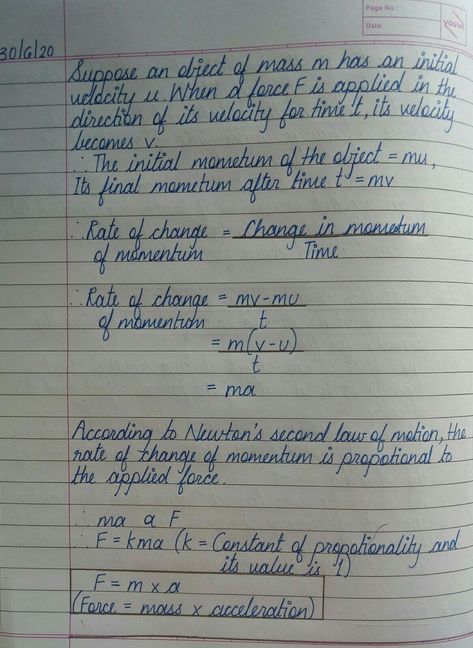 Page No.:
Date:
youva
30/6/20
Suppose an object of mass m has an initial
velocity u. When a force F is applied in the
direction of its velocity for time t, its velocity
becomes v.
∴ The initial mometum of the object = mu,
Its final mometum after time t = mv
∴ Rate of change = Change in mometum
of momentum Time
∴ Rate of change = mv-mu
of momentum t
= m(v-u)
t
= ma
According to Newton's second law of motion, the
rate of change of momentum is propotional to
the applied force.
∴ ma α F
∴ F = kma (k = Constant of propotionality and
its value is 1)
F = m x a
(Force = mass x acceleration)